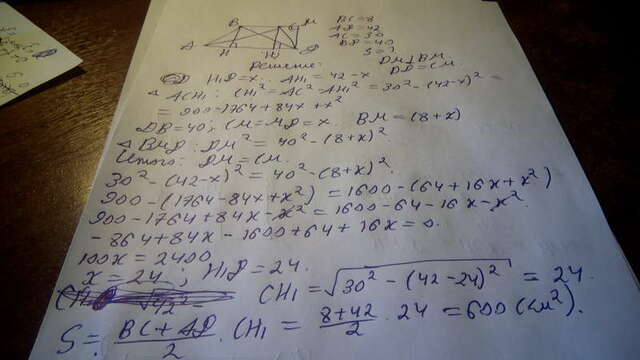 B C M
A H H1 D
BC=8
AD=42
AC=30
BD=40
S=?
Решение:
DM⊥BM
H1D=x. AH1=42-x
△ACH1: CH1²=AC²-AH1²=30²-(42-x)²=
=900-1764+84x+x²
DB=40; CM=MD=x. BM=(8+x)
△BMD: DM²=40²-(8+x)²
Итого: DM=CM.
30²-(42-x)²=40²-(8+x)².
900-(1764-84x+x²)=1600-(64+16x+x²)
900-1764+84x-x²=1600-64-16x-x²
-864+84x-1600+64+16x=0.
100x=2400
x=24; H1D=24.
CH1=√30²-(42-24)²=24.
S=BC+AD/2·CH1=8+42/2·24=600(см²).